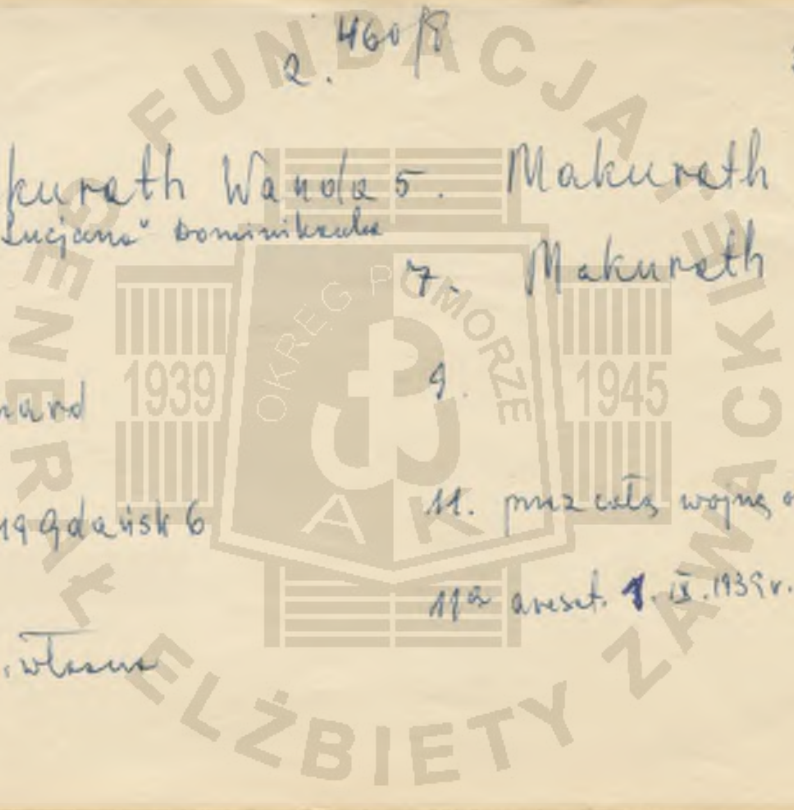 2. 460/8
kurath Wanda 5. Makurath
Lucjana" Dominikanka
7. Makurath
nard
9.
19 Gdańsk 6
11. przez całą wojnę
11a areszt. 1.IX.1939r.
własna
FUNDACJA GENERAŁ ELŻBIETY ZAWACKIEJ
OKRĘG POMORZE
1939
1945
AK